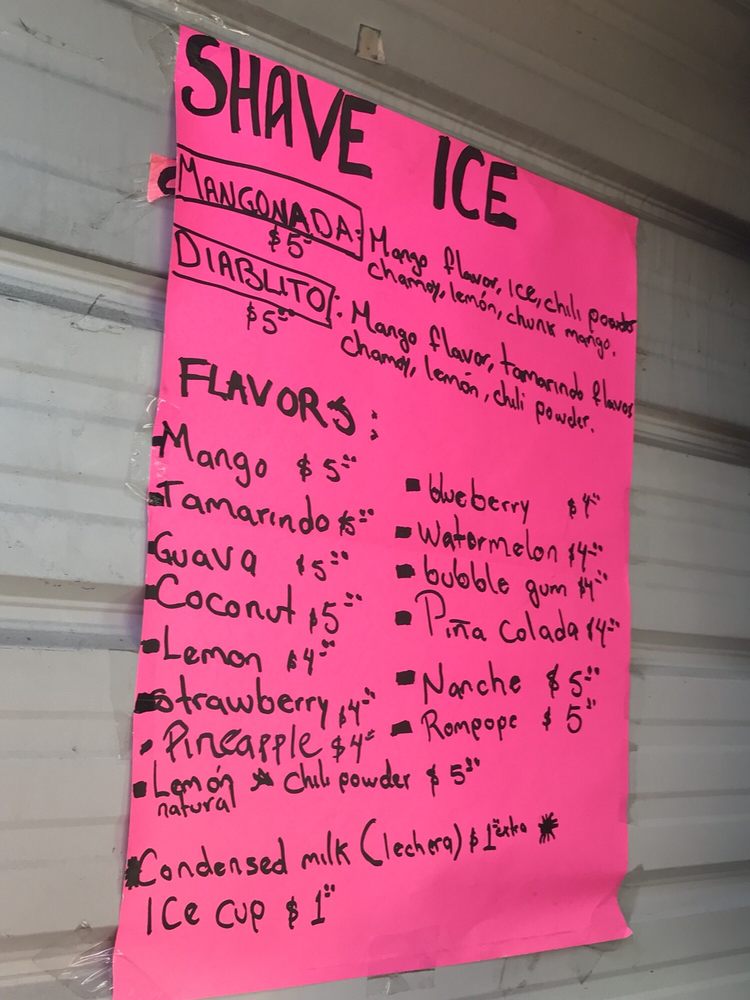 SHAVE ICE
MANGONADA: Mango flavor, ice, chili powder
$5.00 chamoy, lemón, chunk mango.
DIABLITO: Mango flavor, tamarindo flavor
$5.00 chamoy, lemón, chili powder.
FLAVORS:
Mango $5.00
Tamarindo $5.00
Guava $5.00
Coconut $5.00
Lemon $4.00
Strawberry $4.00
Pineapple $4.00
Lemón natural chili powder $5.00
blueberry $4.00
Watermelon $4.00
bubble gum $4.00
Piña colada $4.00
Nanche $5.00
Rompope $5.00
Condensed milk (lechera) $1.00 extra
Ice cup $1.00